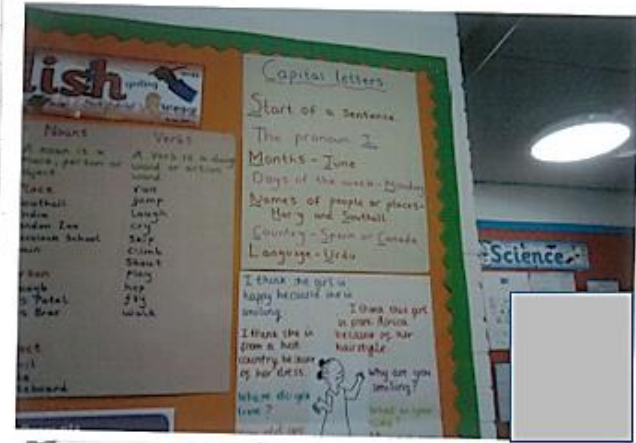 lish
Nouns
A noun is a
place, person or
object
Place
Southall
India
London Zoo
School
Person
s Patel
s Brar
Verbs
A verb is a doing
word or action
word
run
jump
laugh
cry
skip
climb
Shout
play
hop
fly
walk
Capital letters
Start of a sentence
The pronoun I
Months - June
Days of the week - Monday
Names of people or places -
Mary and Southall
Country - Spain or Canada
Language - Urdu
I think the girl is
happy because she is
smiling.
I think this girl
is from Africa
because of her
hairstyle.
I think she is
from a hot
country because
of her dress.
Why are you
smiling?
Where do you
live?
Science